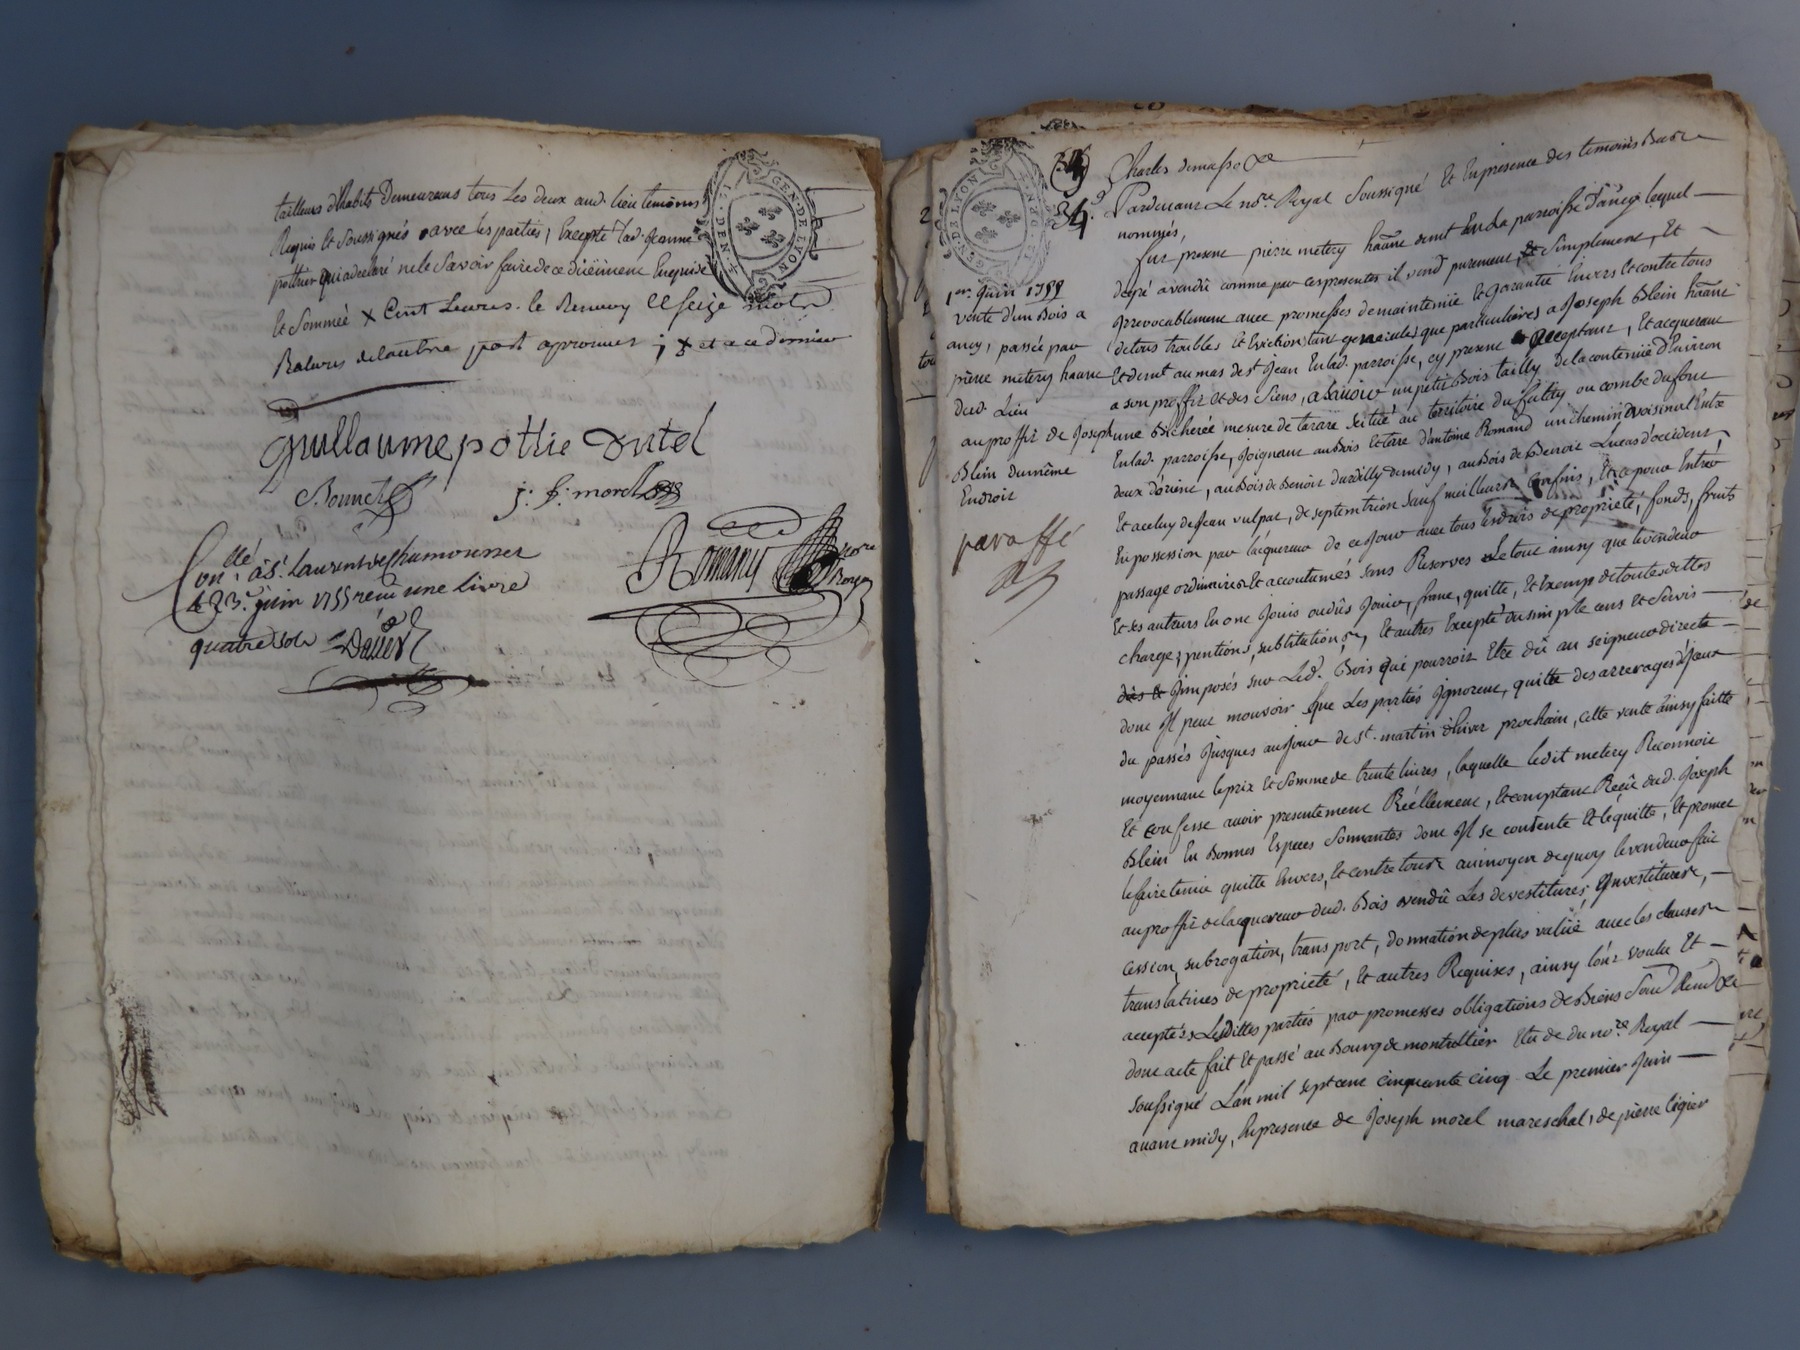 tailleurs d'habits Demeurans tous Les deux aud. lieu temoins
Requis Et Soussignés avec les parties, Excepté lad. jeanne
pothier qui a declaré ne le Savoir faire de ce düément Enquise
Et Sommée x Cent Livres. le Renvoy
Ratures de l'autre part aprouvés
Guillaume pothie Dutel
Bonnet
j: f: morel
Romany nore Royal
Conllé. à St. Laurent de Chamousset
le 23e. juin 1755 reçu une livre
quatre sols
GEN. DE LYON
GEN. DE LYON
34
34
Charles demasso &c
Pardevant Le nore. Royal Soussigné Et En presence des temoins Bas
nommés,
fut present pierre metery habne demt En La parroisse d'ancy lequel
de gré a vendû comme par ces presentes il vend purement, Et Simplement, Et
Jrrevocablement avec promesses de maintenir Et garantir Envers Et contre tous
de tous troubles Et Eviction tant generales que particulieres a Joseph Blein habne
Et demt au mas de st Jean En lad. parroisse, cy present acceptant, Et acquereur
a son proffit Et des Siens, a Sçavoir un petit Bois tailly de la contenüe d'Environ
une Bicherée mesure de tarare Scitüé au territoire du ou combe du four
En lad. parroisse, Joignant au Bois Et terre d'antoine Romand un chemin voisinal Entre
deux d'orient, au Bois de Benoit Durdilly de midy, au Bois de Benoit Lucas d'occident,
Et a celuy de Jean vulpat, de septemtrion Sauf meilleurs Confins, Et ce pour Entrer
En possession par l'acquereur de ce jour avec tous Ses droits de proprieté, fonds, fruits
passage ordinaires Et accoutumés Sans Reserves Le tout ainsy que le vendeur
Et Ses auteurs En ont Jouis ou dûs Jouir, franc, quitte, Et Exemp de toutes dettes
charges, pentions, substitutions, Et autres Excepté du simple cens Et Servis
Jmposés sur Led. Bois qui pourroit Etre dû au seigneur directe
dont Jl peut mouvoir que Les parties Jgnorent, quitte des arrerages d'Jceux
du passés Jusques au Jour de St. martin d'hiver prochain, cette vente ainsy faitte
moyennant le prix Et Somme de trente livres, laquelle ledit metery Reconnoit
Et confesse avoir presentement Réellement, Et comptant Reçûe dud. Joseph
Blein En Bonnes Especes Sonnantes dont Jl se contente Et l'équitte, Et promet
le faire tenir quitte Envers, Et contre tous au moyen de quoy le vendeur fait
au proffit de l'acquereur dud. Bois vendû Les devestitures, Jnvestitures,
cession, subrogation, transport, donnation de plus valüe avec les clauses
translatives de proprieté, Et autres Requises, ainsy l'ont voulu Et
acceptés Lesdittes parties par promesses obligations de Biens
dont acte fait Et passé au Bourg de montrottier Etude du nore. Royal
soussigné L'an mil sept cent cinquante cinq Le premier Juin
avant midy, En presence de Joseph morel mareschal, de pierre
1er. juin 1755
vente d'un Bois a
ancy, passée par
pierre metery habne
dud. Lieu
au proffit de Joseph
Blein du même
Endroit
paraffé